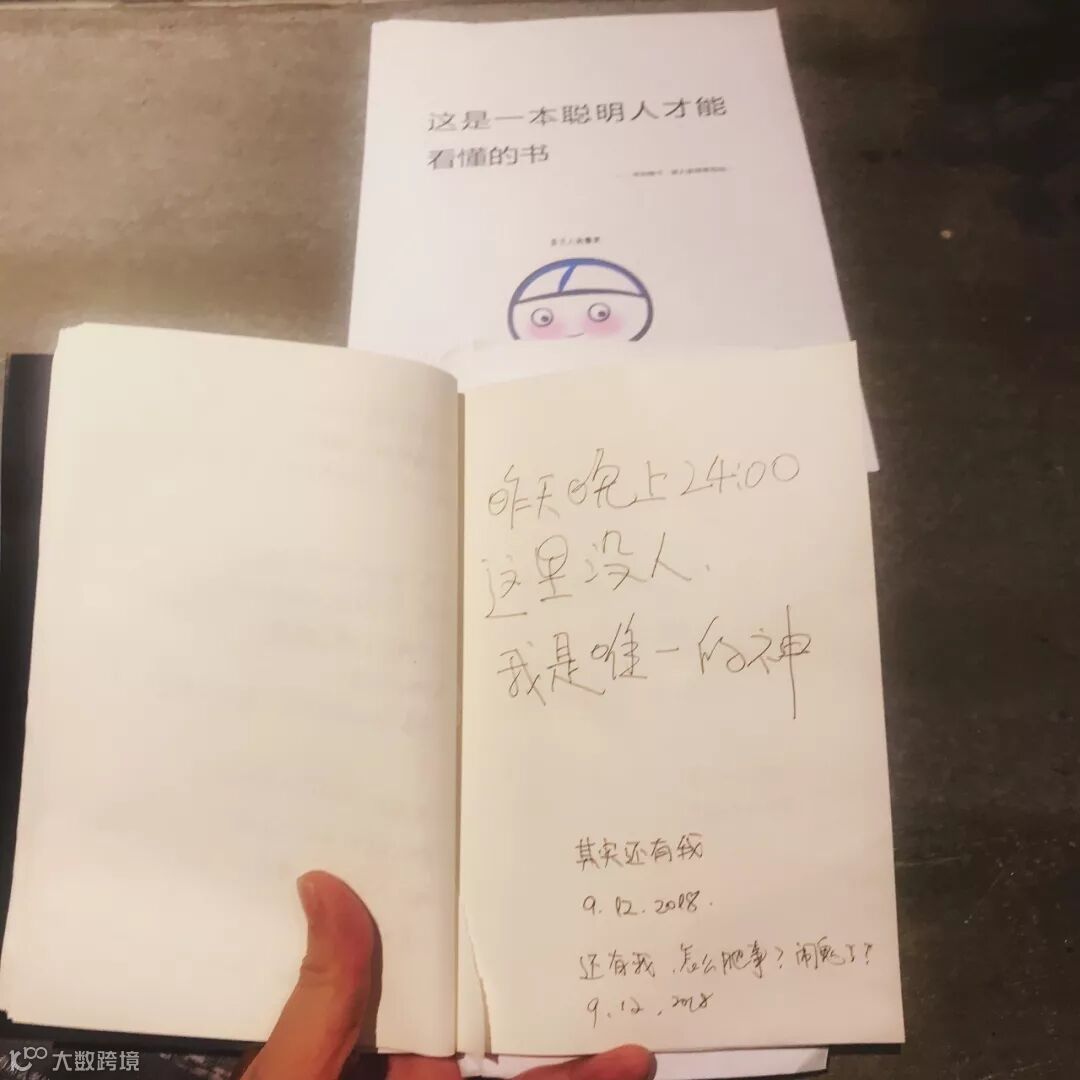 这是一本聪明人才能
看懂的书
昨天晚上24:00
这里没人.
我是唯一的神
其实还有我
9.12.2018.
还有我.怎么肥事?闹鬼了?
9.12.2018
大数跨境